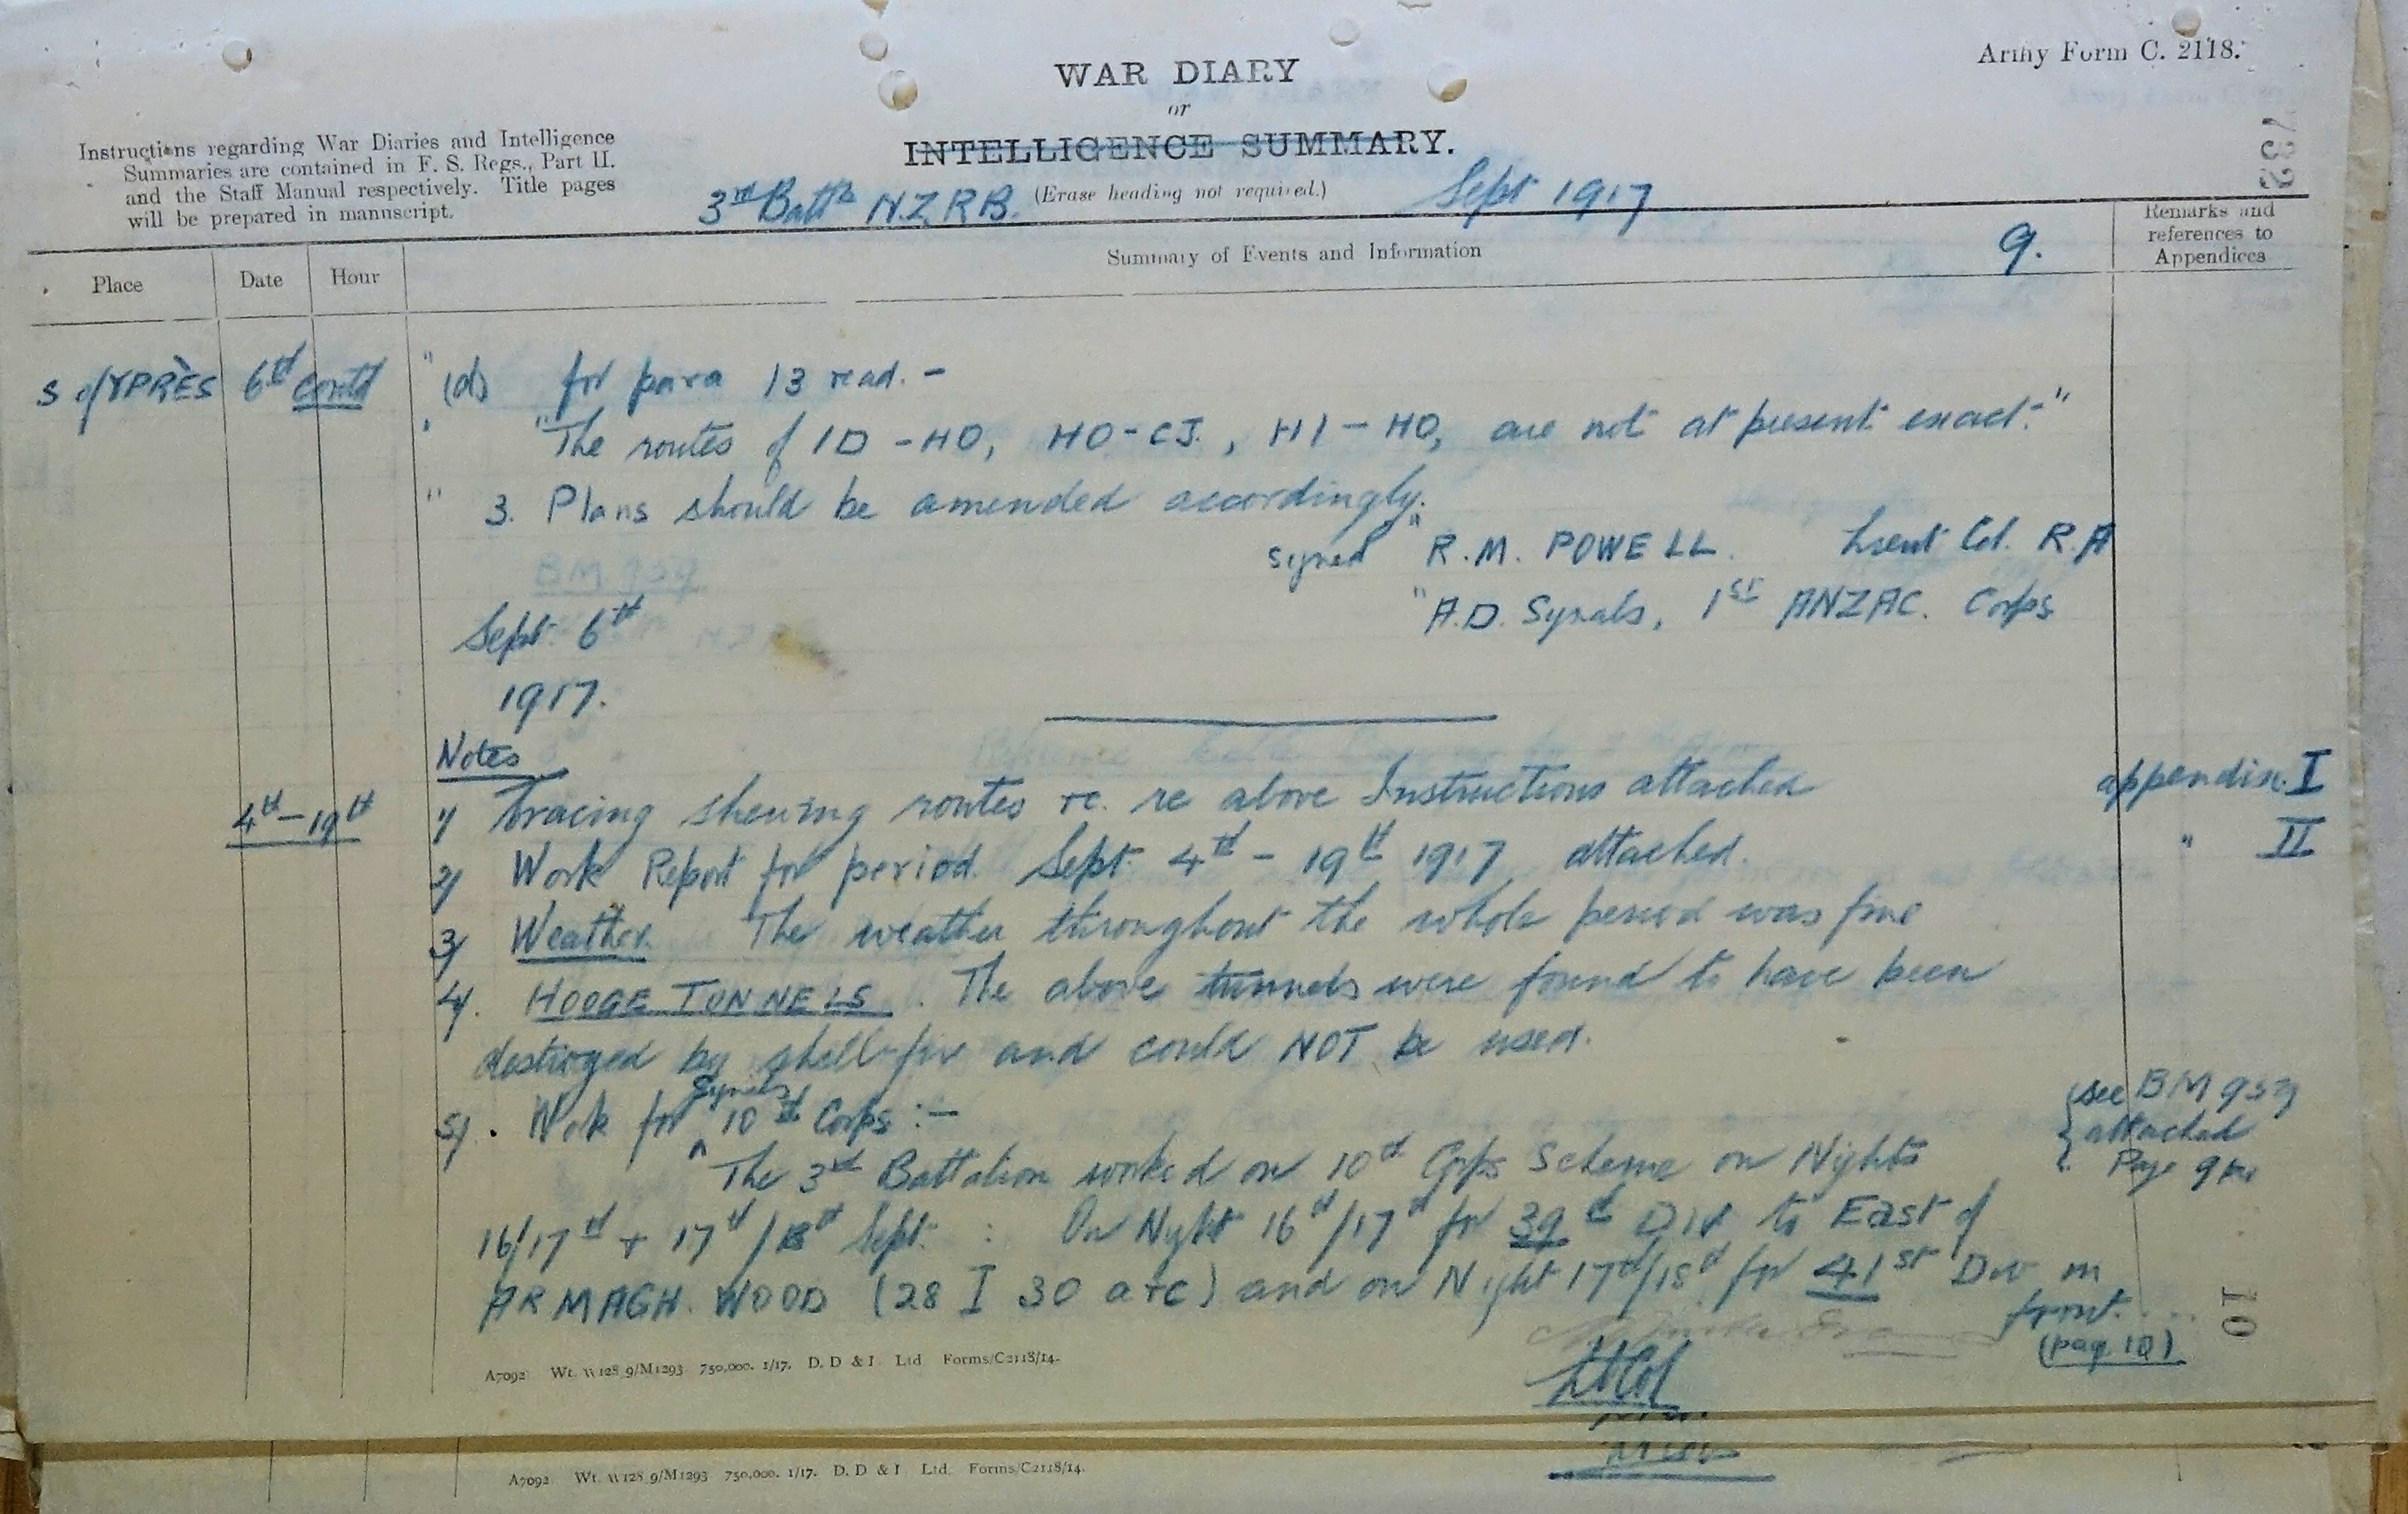 Army Form C. 2118.
WAR DIARY
or
INTELLIGENCE SUMMARY.
(Erase heading not required.)
Instructions regarding War Diaries and Intelligence
Summaries are contained in F. S. Regs., Part II.
and the Staff Manual respectively. Title pages
will be prepared in manuscript.
3rd Battn N.Z.R.B. Sept 1917
Place Date Hour Summary of Events and Information 9. Remarks and
references to
Appendices
S of YPRÈS 6th contd " (d) for para 13 read. -
" "The routes of ID - HO, HO - CJ., HI - HO, are not at present exact."
" 3. Plans should be amended accordingly.
signed " R.M. POWELL. Lieut Col. R A
" A.D. Signals, 1st ANZAC. Corps
Sept 6th
1917.
Notes
4th - 19th 1) Tracing shewing routes re above Instructions attached appendix I
2) Work Report for period Sept 4th - 19th 1917 attached. " II
3) Weather The weather throughout the whole period was fine
4). HOOGE TUNNELS. The above tunnels were found to have been
destroyed by shell-fire and could NOT be used.
5). Work for Signals 10th Corps :-
see BM 959
attached
Page 9
The 3rd Battalion worked on 10th Corps Scheme on Nights
16/17th + 17th/18th Sept : On Night 16th/17th for 39th Div to East of
ARMAGH. WOOD (28 I 30 a+c) and on Night 17th/18th for 41st Div in
front.
(page 10)
Lt Col
10
A7092 Wt. W128 9/M1293 750,000. 1/17. D. D & I Ltd Forms/C2118/14.
A7092 Wt. W128 9/M1293 750,000. 1/17. D. D & I Ltd. Forms/C2118/14.